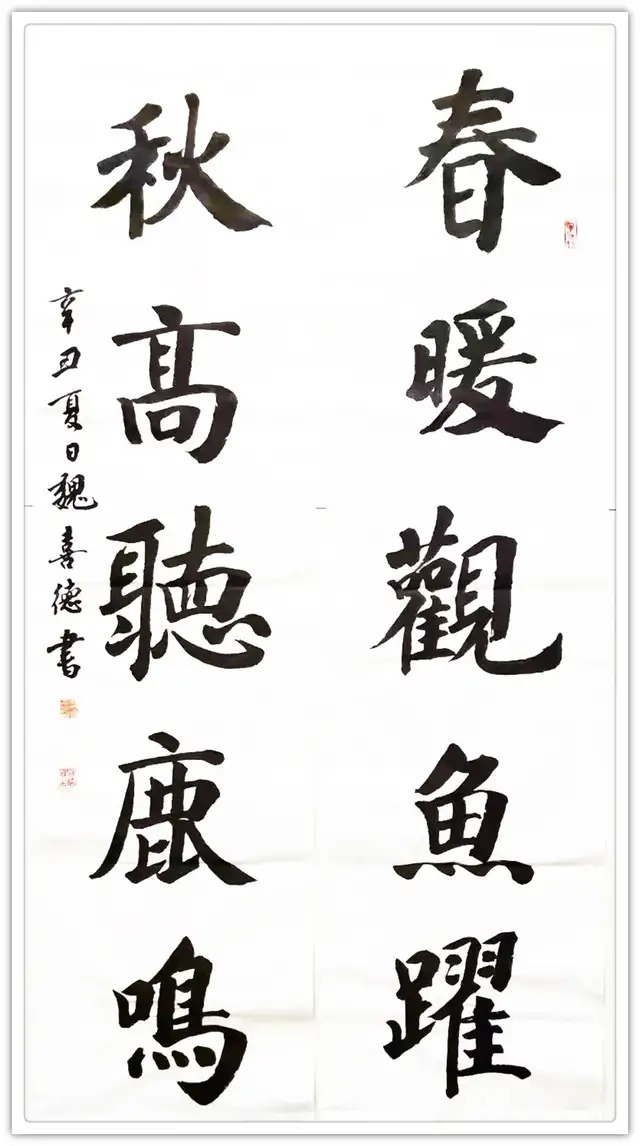 春暖觀魚躍
秋髙聽鹿鳴
辛丑夏日魏喜德書